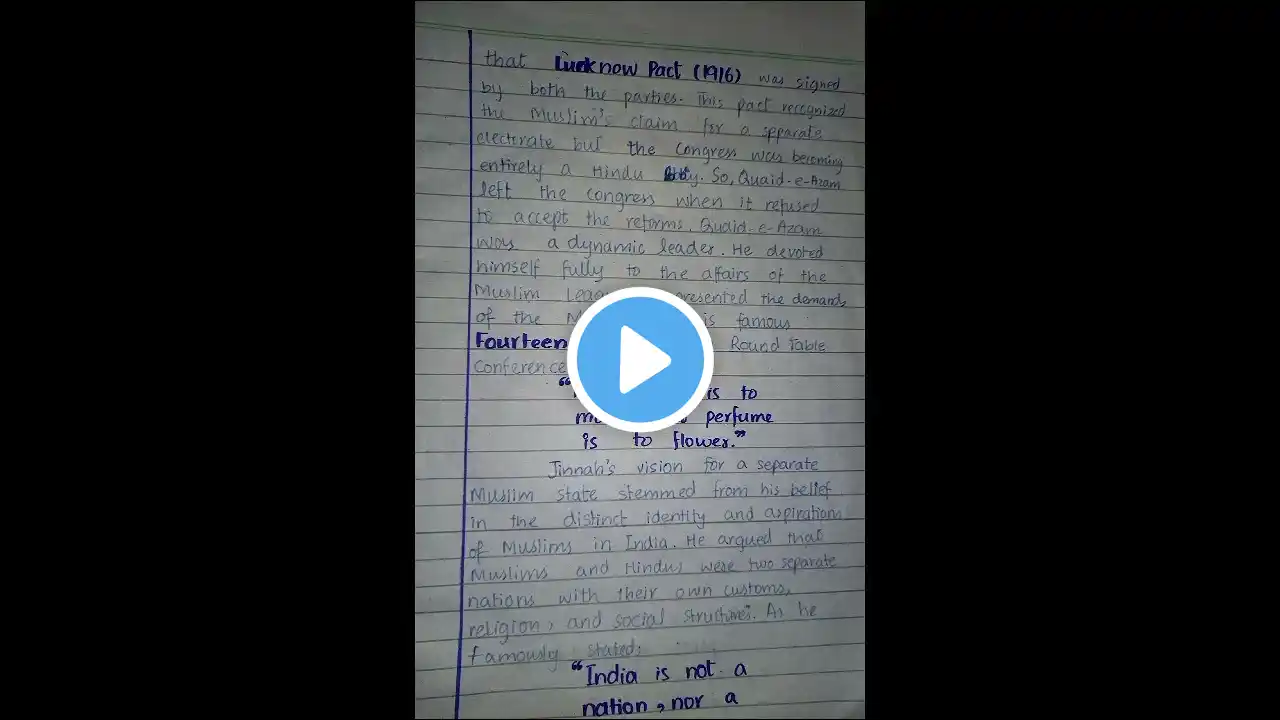 that Lucknow Pact (1916) was signed
by both the parties. This pact recognized
the Muslim's claim for a separate
electorate but the congress was becoming
entirely a Hindu So, Quaid-e-Azam
left the congress when it refused
to accept the reforms. Quaid-e-Azam
was a dynamic leader. He devoted
himself fully to the affairs of the
Muslim presented the demands
of the famous
Fourteen Round Table
Conference
is to
perfume
is to flower."
Jinnah's vision for a separate
Muslim state stemmed from his belief
in the distinct identity and aspirations
of Muslims in India. He argued that
Muslims and Hindus were two separate
nations with their own customs,
religion, and social structures. As he
famously stated:
"India is not a
nation, nor a